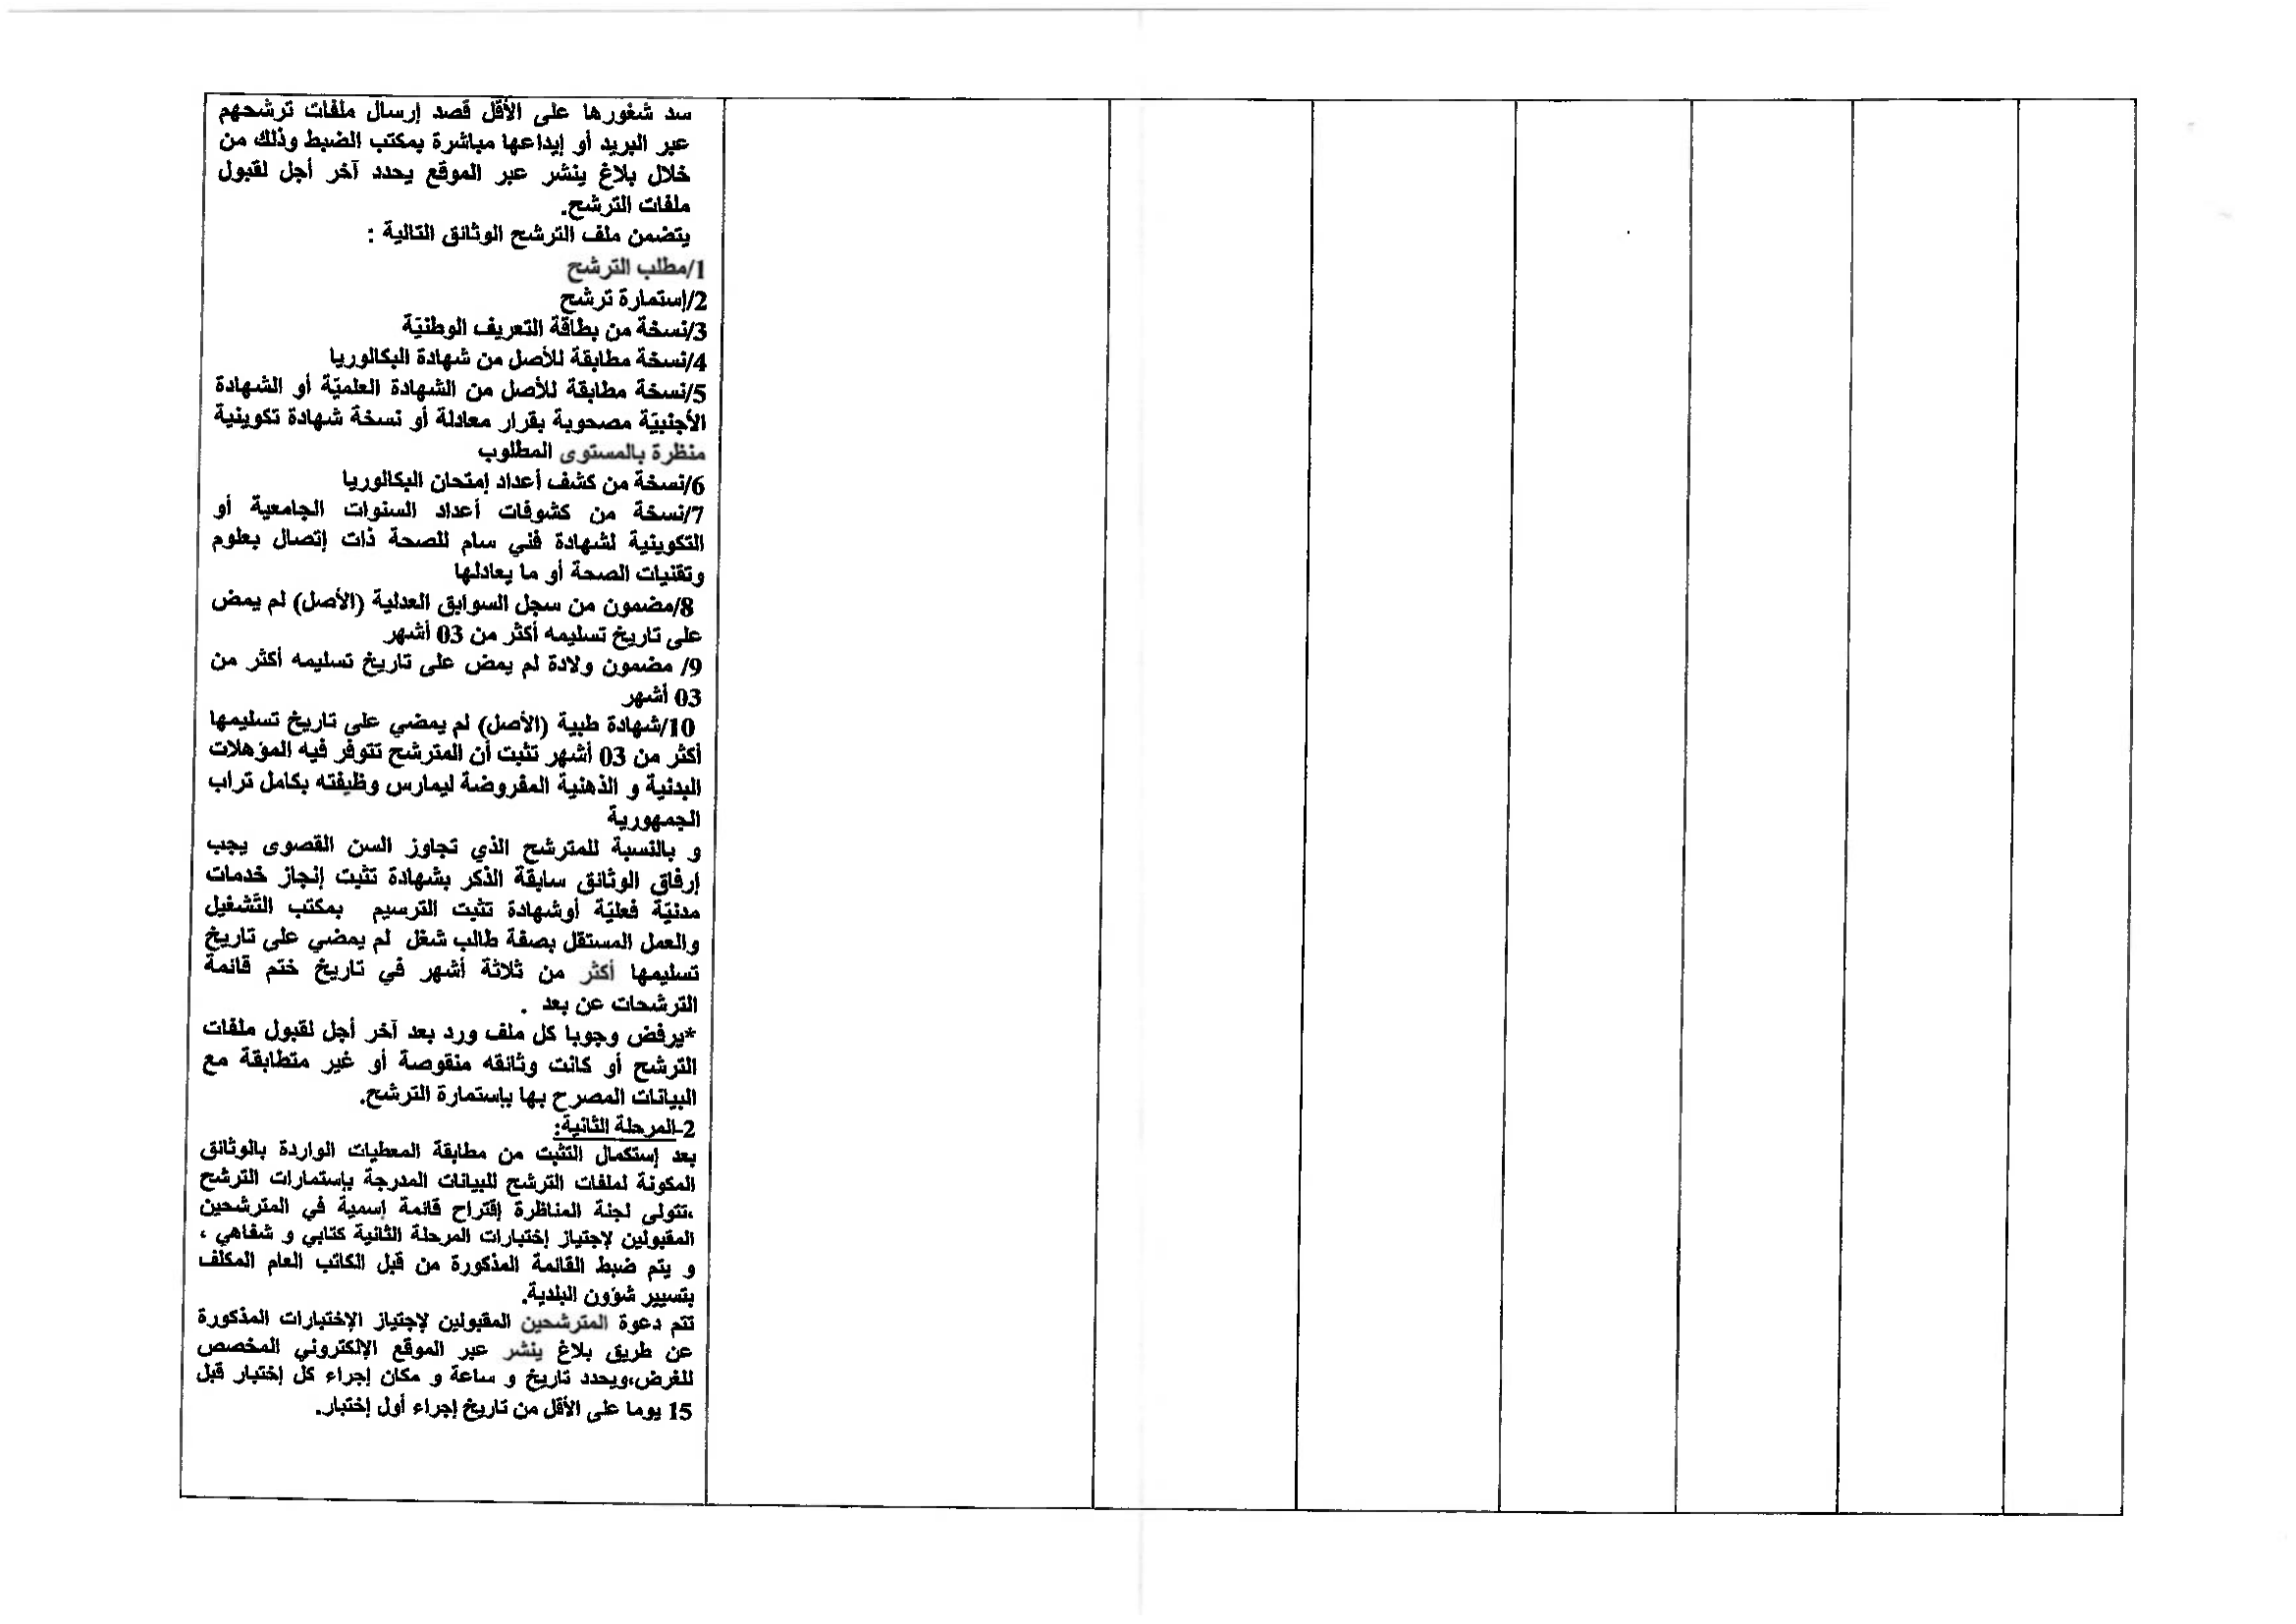 سد شغورها على الأقل قصد إرسال ملفات ترشحهم
عبر البريد أو إيداعها مباشرة بمكتب الضبط وذلك من
خلال بلاغ ينشر عبر الموقع يحدد آخر أجل لقبول
ملفات الترشح.
يتضمن ملف الترشح الوثائق التالية :
1/مطلب الترشح
2/إستمارة ترشح
3/نسخة من بطاقة التعريف الوطنيّة
4/نسخة مطابقة للأصل من شهادة البكالوريا
5/نسخة مطابقة للأصل من الشهادة العلميّة أو الشهادة
الأجنبيّة مصحوبة بقرار معادلة أو نسخة شهادة تكوينية
منظرة بالمستوى المطلوب
6/نسخة من كشف أعداد إمتحان البكالوريا
7/نسخة من كشوفات أعداد السنوات الجامعية أو
التكوينية لشهادة فني سام للصحة ذات إتصال بعلوم
وتقنيات الصحة أو ما يعادلها
8/مضمون من سجل السوابق العدلية (الأصل) لم يمض
على تاريخ تسليمه أكثر من 03 أشهر
9/ مضمون ولادة لم يمض على تاريخ تسليمه أكثر من
03 أشهر
10/شهادة طبية (الأصل) لم يمضي على تاريخ تسليمها
أكثر من 03 أشهر تثبت أن المترشح تتوفر فيه المؤهلات
البدنية و الذهنية المفروضة ليمارس وظيفته بكامل تراب
الجمهورية
و بالنسبة للمترشح الذي تجاوز السن القصوى يجب
إرفاق الوثائق سابقة الذكر بشهادة تثبت إنجاز خدمات
مدنيّة فعليّة أوشهادة تثبت الترسيم بمكتب التّشغيل
والعمل المستقل بصفة طالب شغل لم يمضي على تاريخ
تسليمها أكثر من ثلاثة أشهر في تاريخ ختم قائمة
الترشحات عن بعد .
*يرفض وجوبا كل ملف ورد بعد آخر أجل لقبول ملفات
الترشح أو كانت وثائقه منقوصة أو غير متطابقة مع
البيانات المصرح بها بإستمارة الترشح.
2-المرحلة الثانية:
بعد إستكمال التثبت من مطابقة المعطيات الواردة بالوثائق
المكونة لملفات الترشح للبيانات المدرجة بإستمارات الترشح
،تتولى لجنة المناظرة إقتراح قائمة إسمية في المترشحين
المقبولين لإجتياز إختبارات المرحلة الثانية كتابي و شفاهي ،
و يتم ضبط القائمة المذكورة من قبل الكاتب العام المكلف
بتسيير شؤون البلدية.
تتم دعوة المترشحين المقبولين لإجتياز الإختبارات المذكورة
عن طريق بلاغ ينشر عبر الموقع الإلكتروني المخصص
للغرض،ويحدد تاريخ و ساعة و مكان إجراء كل إختبار قبل
15 يوما على الأقل من تاريخ إجراء أول إختبار.